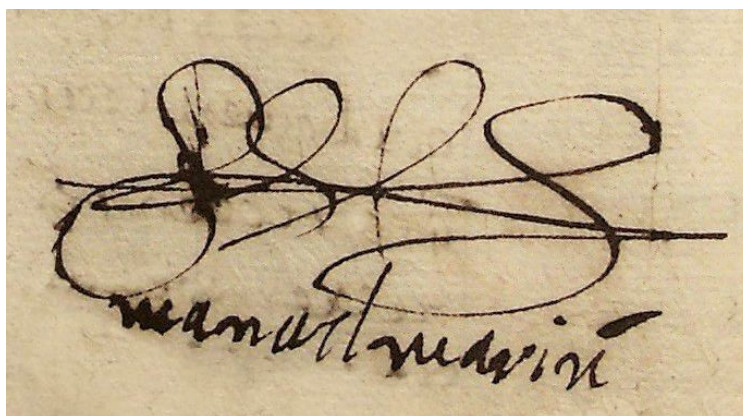 manuel marin